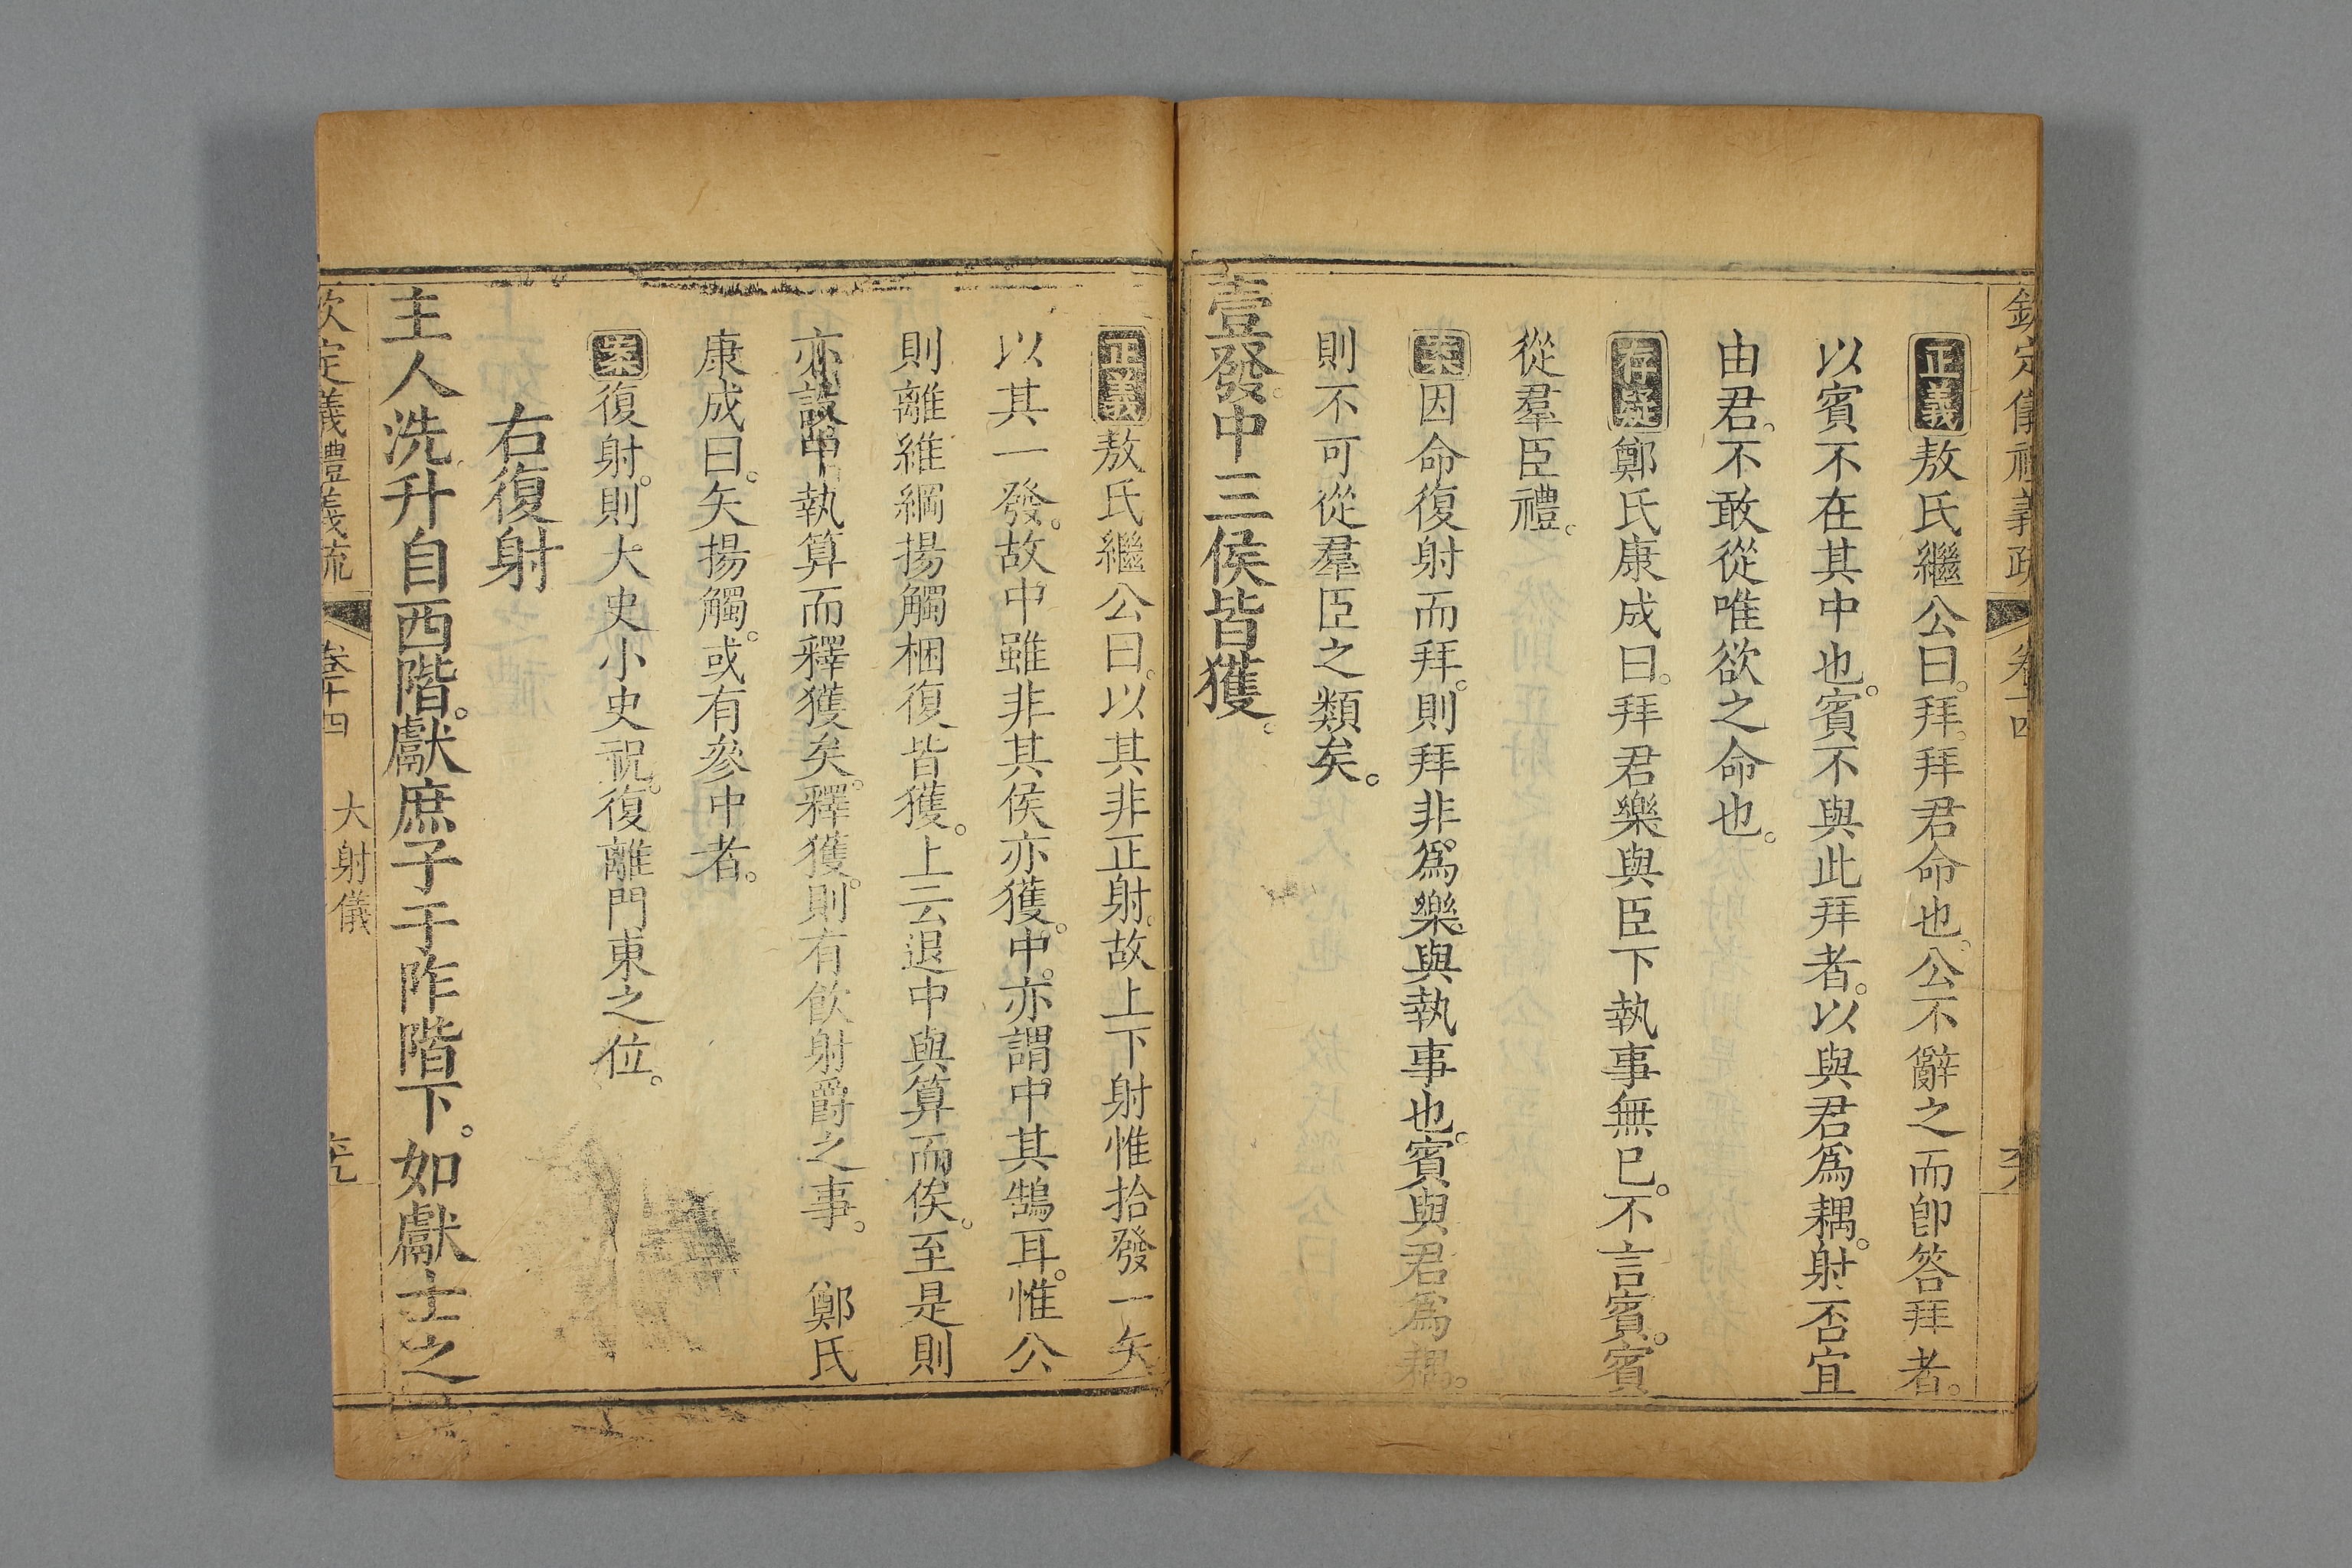 欽定儀禮義疏 卷十四
正義敖氏繼公曰。拜。拜君命也。公不辭之而卽答拜者。
以賓不在其中也。賓不與此拜者。以與君爲耦。射否宜
由君。不敢從唯欲之命也。
存疑鄭氏康成曰。拜君樂與臣下執事無已。不言賓。賓
從羣臣禮。
案因命復射而拜。則拜非爲樂與執事也。賓與君爲耦。
則不可從羣臣之類矣。
壹發。中三侯皆獲。
正義敖氏繼公曰。以其非正射。故上下射惟拾發一矢
以其一發。故中雖非其侯亦獲。中。亦謂中其鵠耳。惟公
則離維綱揚觸梱復皆獲。上云退中與算而俟。至是則
亦設中執算而釋獲矣。釋獲。則有飮射爵之事。 鄭氏
康成曰。矢揚觸。或有參中者。
案復射。則大史小史祝。復離門東之位。
右復射
主人洗升自西階。獻庶子于阼階下。如獻士之
欽定儀禮義疏 卷十四 大射儀